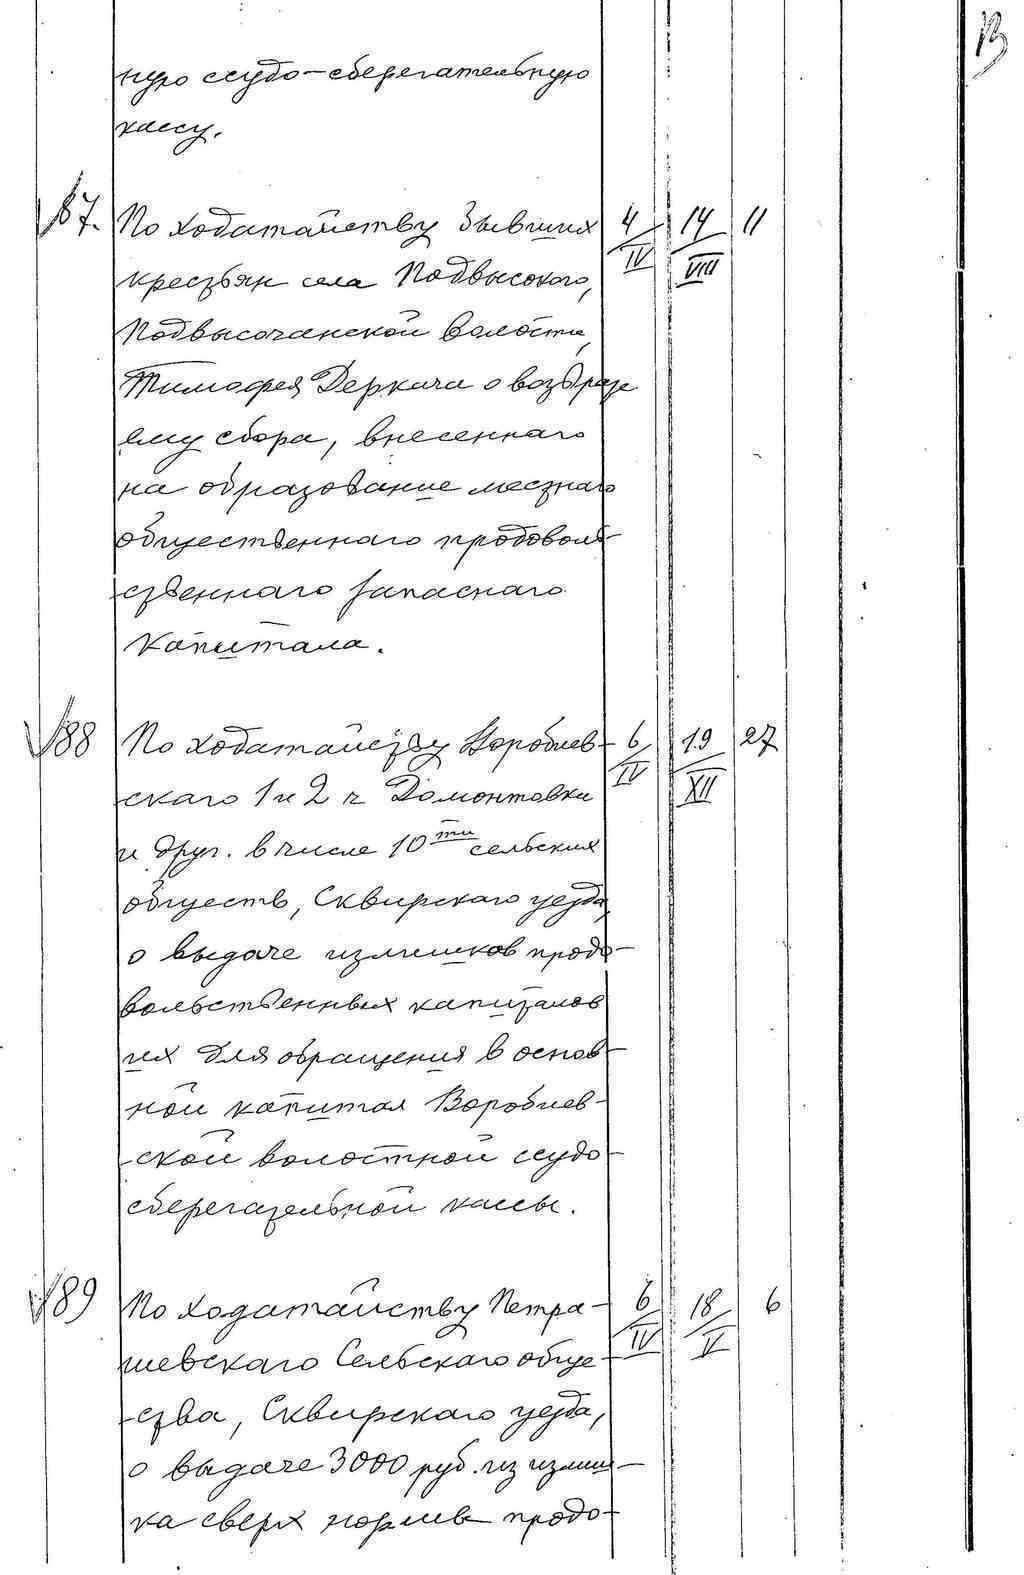 13
ную ссудо-сберегательную
кассу.
87. По ходатайству бывших 4/IV 14/VIII 11
крестьян села Подвысокого,
Подвысочанской волости,
Тимофея Деркача о возврате
ему сбора, внесеннаго
на образование местнаго
общественнаго продоволь-
ственнаго запаснаго
капитала.
88 По ходатайству Воробиев- 6/IV 19/XII 27
скаго 1 и 2 ч Домонтовки
и друг. в числе 10ти сельских
обществ, Сквирскаго уезда,
о выдаче излишков продо-
вольственных капиталов
их для обращения в основ-
ной капитал Воробиев-
ской волостной ссудо-
сберегательной кассы.
89 По ходатайству Петра- 6/IV 18/V 6
шевскаго Сельскаго обще-
ства, Сквирскаго уезда,
о выдаче 3000 руб. из излиш-
ка сверх нормы продо-